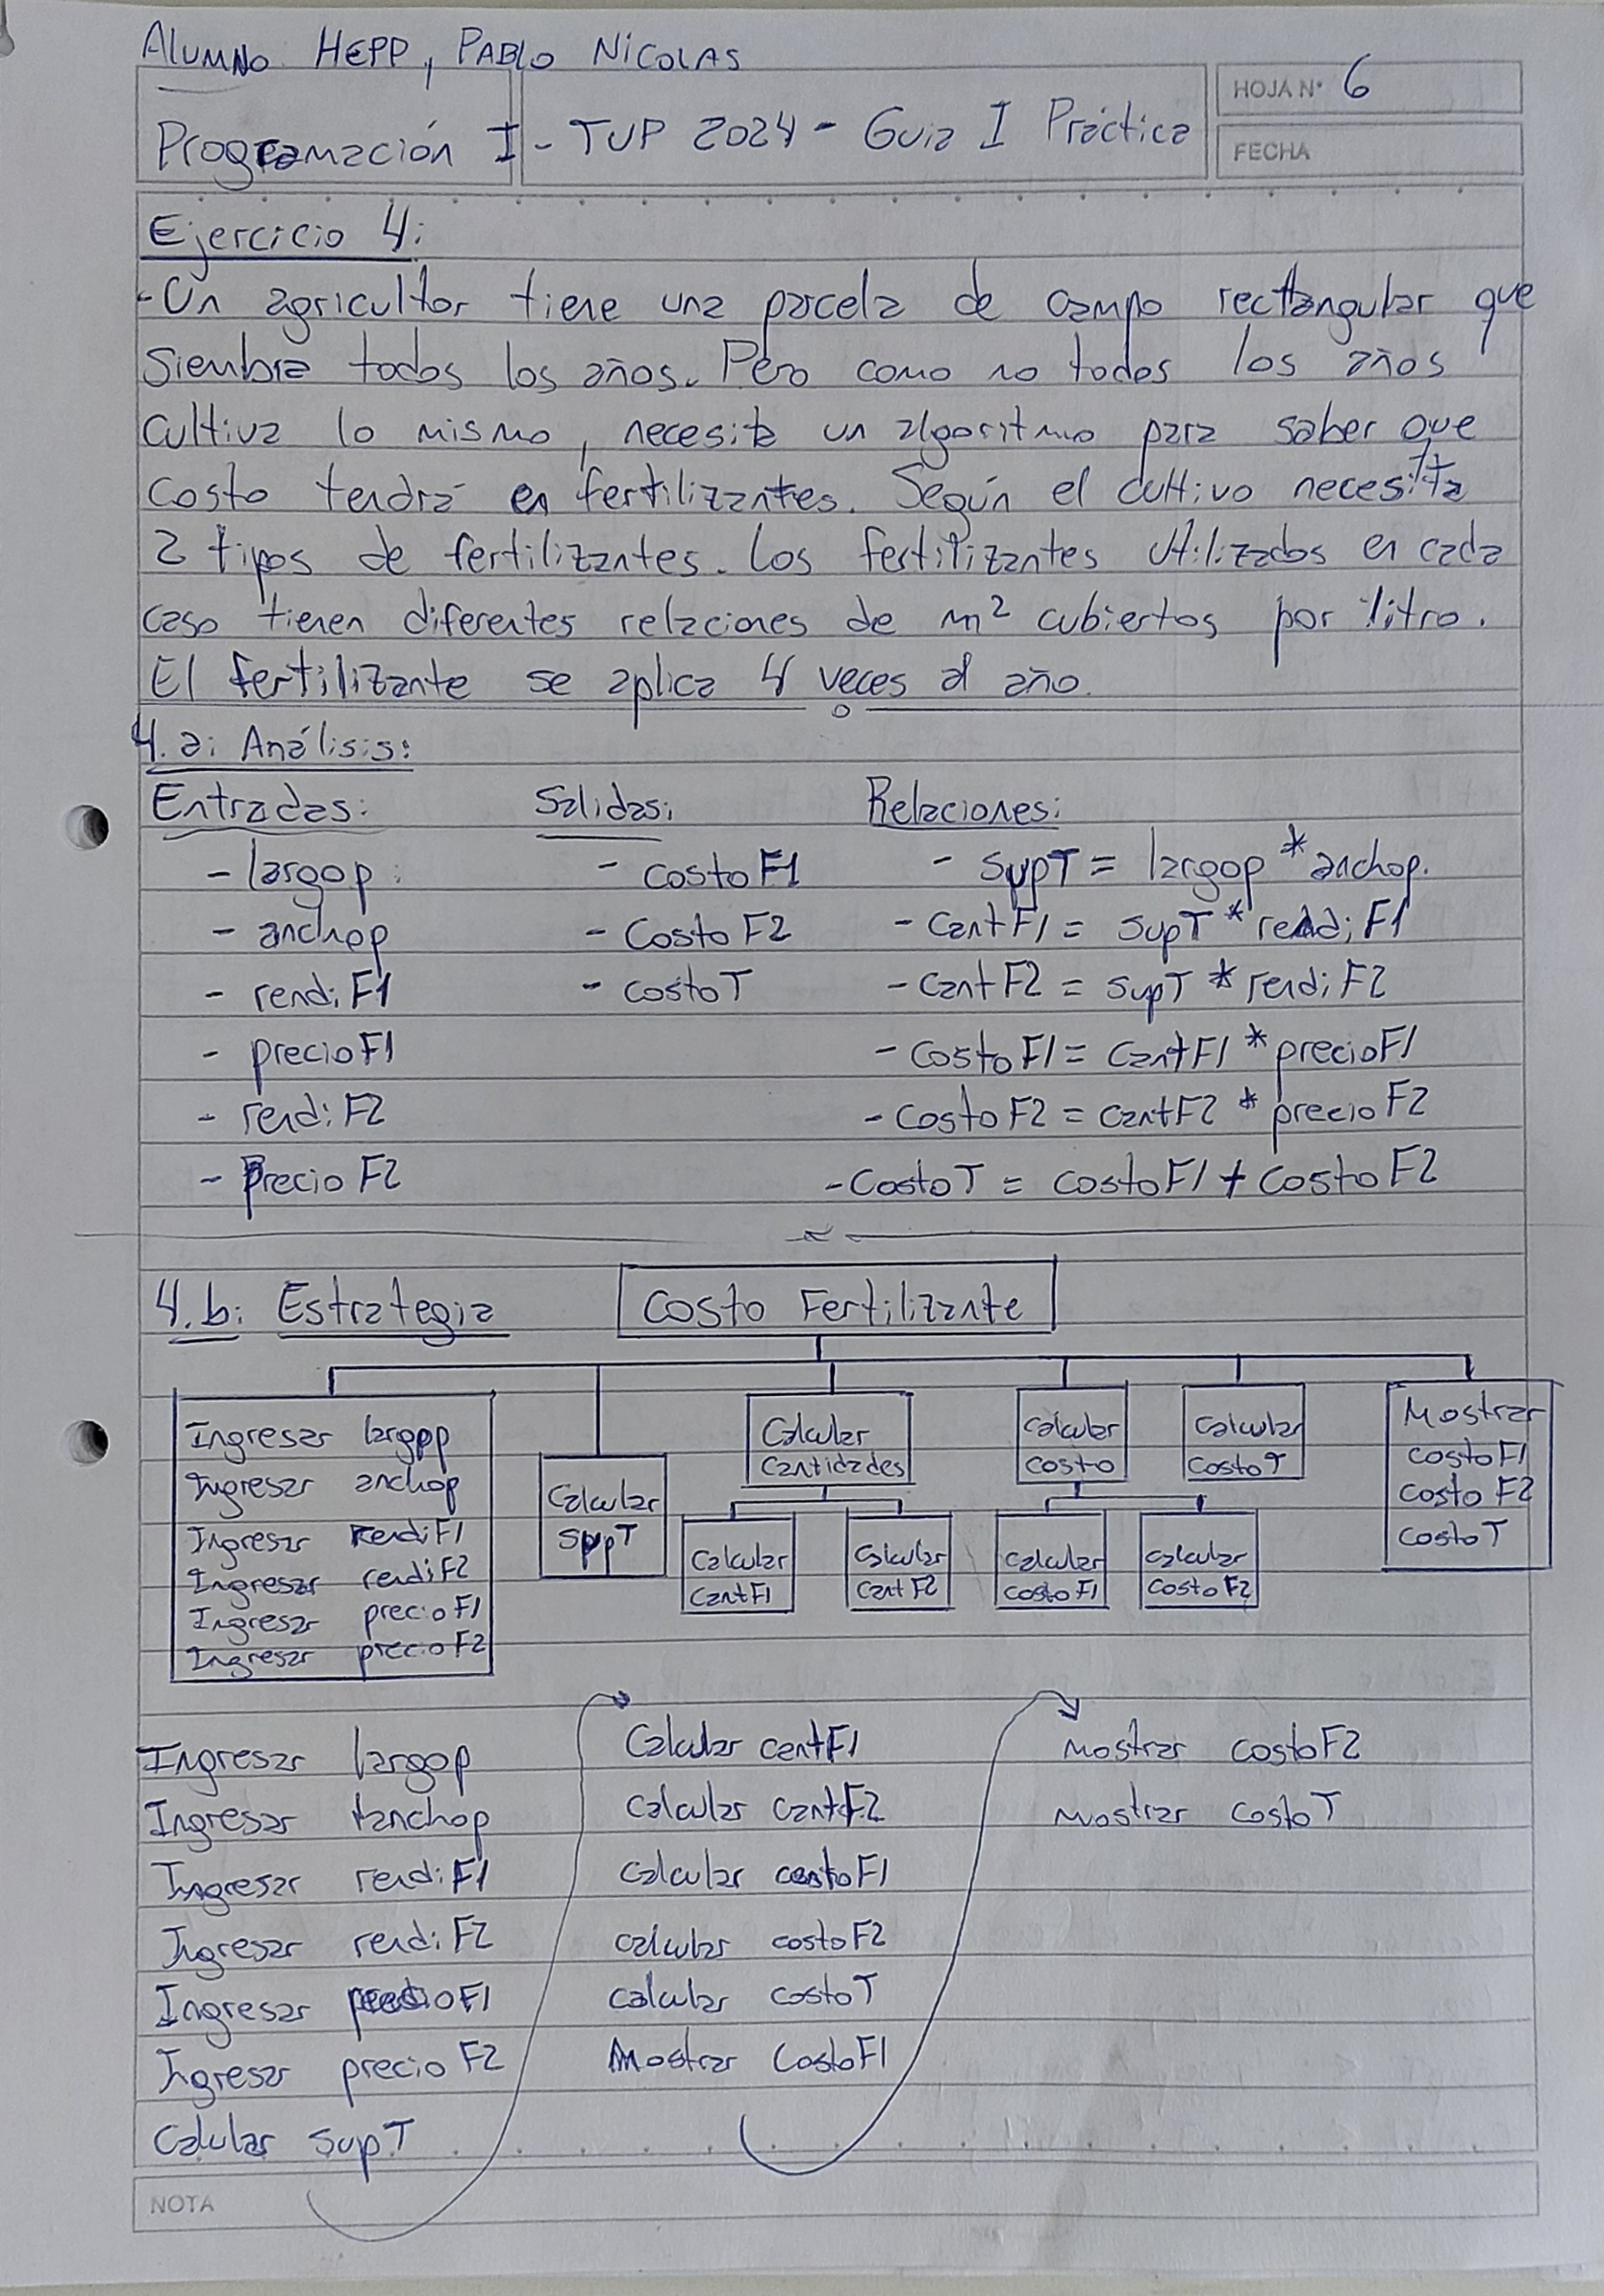 Alumno HEPP, PABLO NICOLAS
Programación I - TUP 2024 - Guia I Práctica
HOJA N° 6
FECHA
Ejercicio 4:
-Un agricultor tiene una parcela de campo rectangular que
siembra todos los años. Pero como no todos los años
cultiva lo mismo, necesita un algoritmo para saber que
costo tendrá en fertilizantes. Según el cultivo necesita
2 tipos de fertilizantes. Los fertilizantes utilizados en cada
caso tienen diferentes relaciones de m² cubiertos por litro.
El fertilizante se aplica 4 veces al año.
4.a: Análisis:
Entradas: Salidas: Relaciones:
- largop: - costo F1 - supT = largop * anchop.
- anchop - Costo F2 - Cant F1 = supT * rendi F1
- rendi F1 - costo T - Cant F2 = supT * rendi F2
- precio F1 - Costo F1 = Cant F1 * precio F1
- rendi F2 - Costo F2 = cant F2 * precio F2
- Precio F2 - Costo T = costo F1 + Costo F2
4.b: Estrategia
Costo Fertilizante
Ingresar largop
Ingresar anchop
Ingresar RendiF1
Ingresar rendiF2
Ingresar precioF1
Ingresar precioF2
Calcular
supT
Calcular
Cantidades
Calcular
Cant F1
Calcular
Cant F2
Calcular
costo
Calcular
costo F1
Calcular
Costo F2
Calcular
Costo T
Mostrar
costo F1
costo F2
costo T
Ingresar largop
Ingresar anchop
Ingresar rendi F1
Ingresar rendi F2
Ingresar precio F1
Ingresar precio F2
Calular supT
Calcular cant F1
calcular cant F2
Calcular costo F1
calcular costo F2
calcular costo T
Mostrar Costo F1
Mostrar costo F2
Mostrar costo T
NOTA